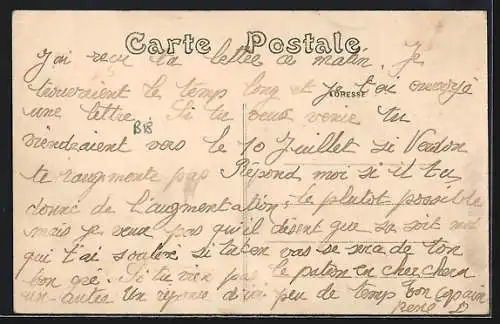 Carte Postale
J'ai reçu ta lettre ce matin. Je
trouvraient le temps long et je t'ai envoyé
ADRESSE
une lettre. Si tu veux venir tu
B 18
viendraient vers le 10 Juillet si Verdon
te raugmente pas Répond moi si il ta
donné de l'augmentation, le plutot possible
mais je veux pas qu'il disent que se soit moi
qui t'ai soutiré si tu ten vas se sera de ton
bon gré. Si tu vien pas le patron en cherchera
un autre Un réponse d'ici peu de temps ton copain
René D